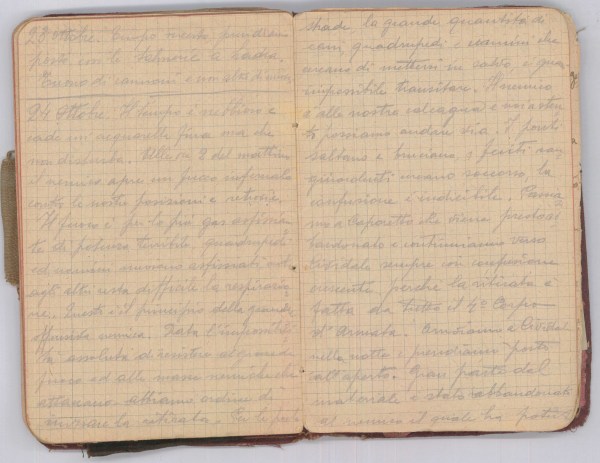 23 Ottobre. Tempo incerto, prendiamo
posto con le batterie
Tuono di cannoni e non altro di nuovo
24 Ottobre. Il tempo è nebbioso e
cade un' acquarella fina ma che
non disturba. Alle ore 2 del mattino
il nemico apre un fuoco infernale
contro le nostre posizioni e retrovie.
Il fuoco è per lo più gas asfissian
te di potenza terribile, quadrupedi
ed uomini muoiono asfissiati e
agli altri resta difficile la respirazio
ne. Questo è il principio della grande
offensiva nemica. Data l'impossibili
tà assoluta di resistere al grande
fuoco ed alle masse nemiche che
attaccano abbiamo ordine di
iniziare la ritirata. Per le
strade la grande quantità di
cani, quadrupedi e uomini che
cercano di mettersi in salvo è quasi
impossibile transitare. Il nemico
è alle nostre calcagna e
possiamo andare via. I ponti
saltano e bruciano, i feriti
chiedono soccorso, la
confusione è indicibile. Passia
mo a Caporetto che viene
bandonato e continuiamo verso
Cividale sempre con confusione
crescente perchè la ritirata è
fatta da tutto il 4° Corpo
d' Armata. Arriviamo a Cividale
nella notte e prendiamo posto
all'aperto. Gran parte del
materiale è stato abbandonato
al nemico il quale ha potuto